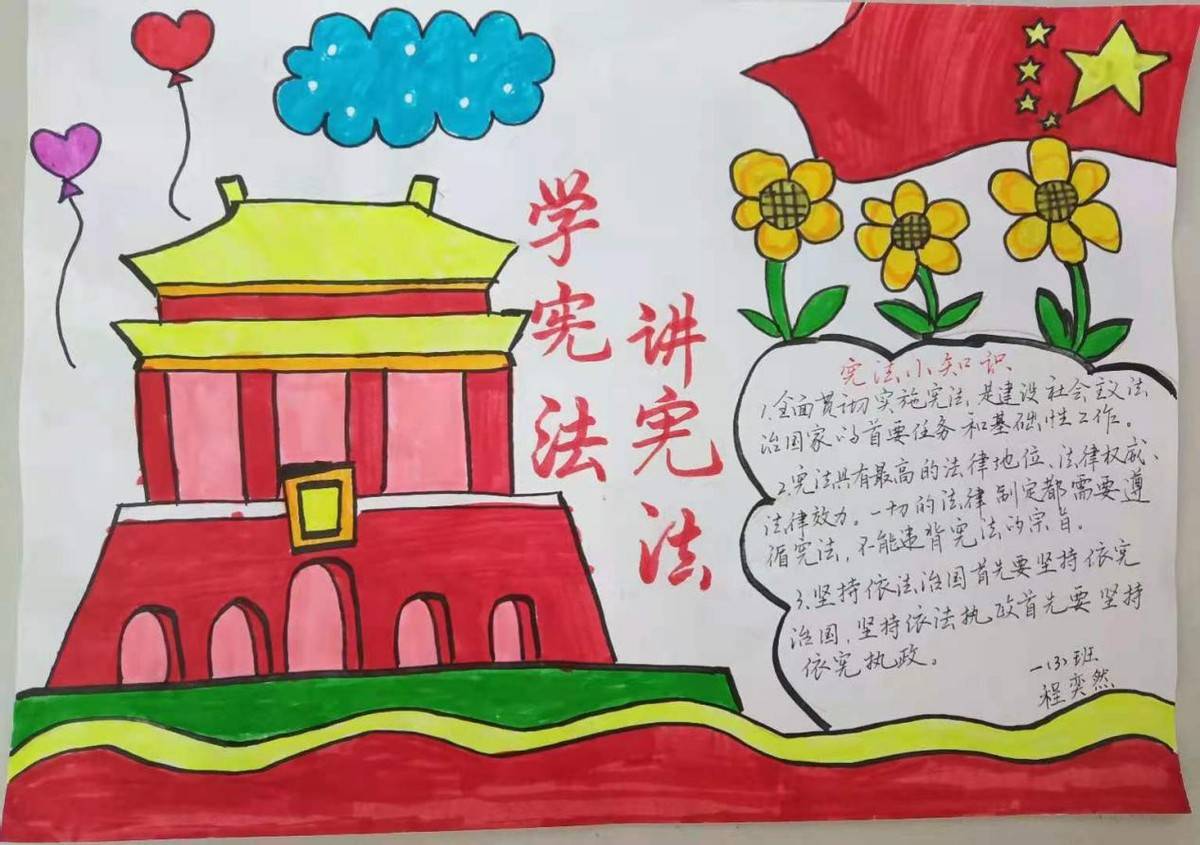 学宪法
讲宪法
宪法小知识
1.全面贯彻实施宪法是建设社会主义法
治国家的首要任务和基础性工作。
2.宪法具有最高的法律地位、法律权威、
法律效力。一切的法律制定都需要遵
循宪法,不能违背宪法的宗旨。
3.坚持依法治国首先要坚持依宪
治国,坚持依法执政首先要坚持
依宪执政。
一(3)班
程奕然